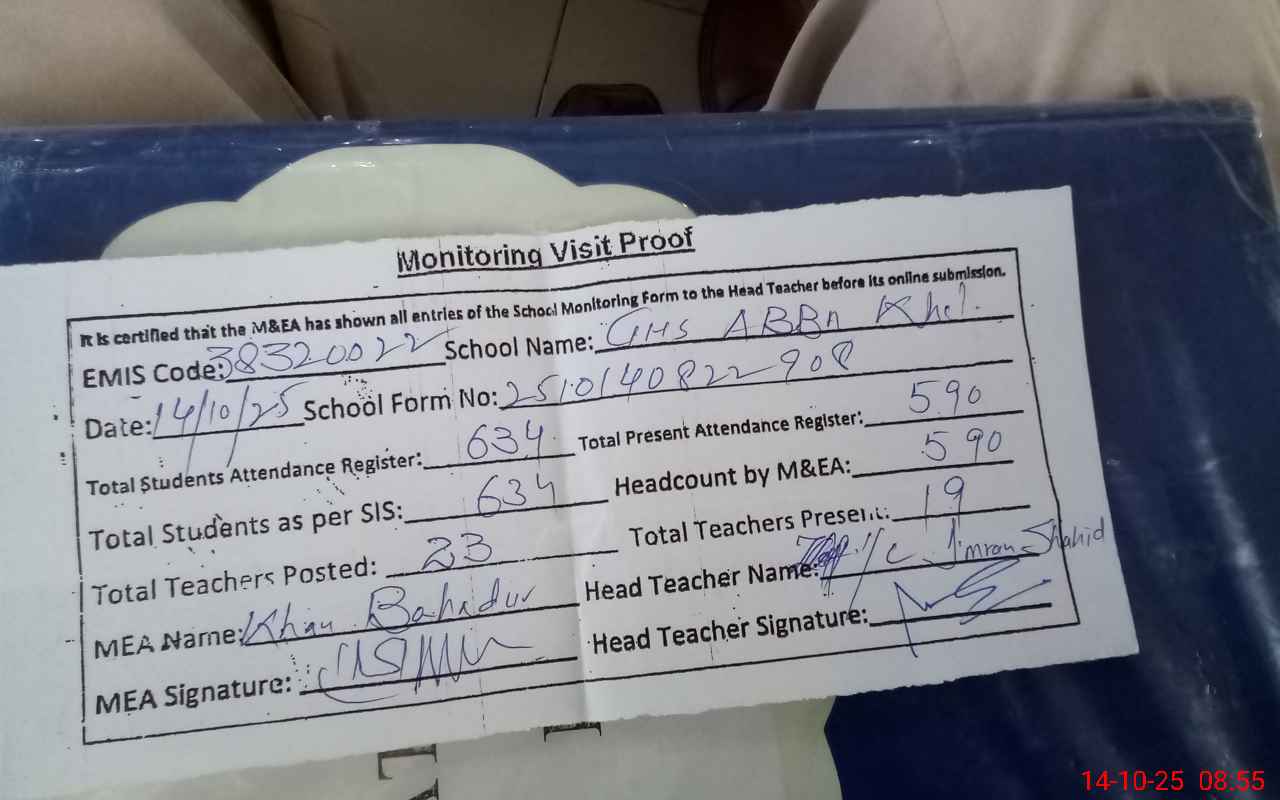 Monitoring Visit Proof
It is certified that the M&EA has shown all entries of the School Monitoring Form to the Head Teacher before its online submission.
EMIS Code: 38320022 School Name: GHS ABBA Khel
Date: 14/10/25 School Form No: 2510140822908
Total Students Attendance Register: 634 Total Present Attendance Register: 590
Total Students as per SIS: 634 Headcount by M&EA: 590
Total Teachers Posted: 23 Total Teachers Present: 19
MEA Name: Khan Bahadur Head Teacher Name: I/C Imran Shahid
MEA Signature: Head Teacher Signature:
14-10-25 08:55